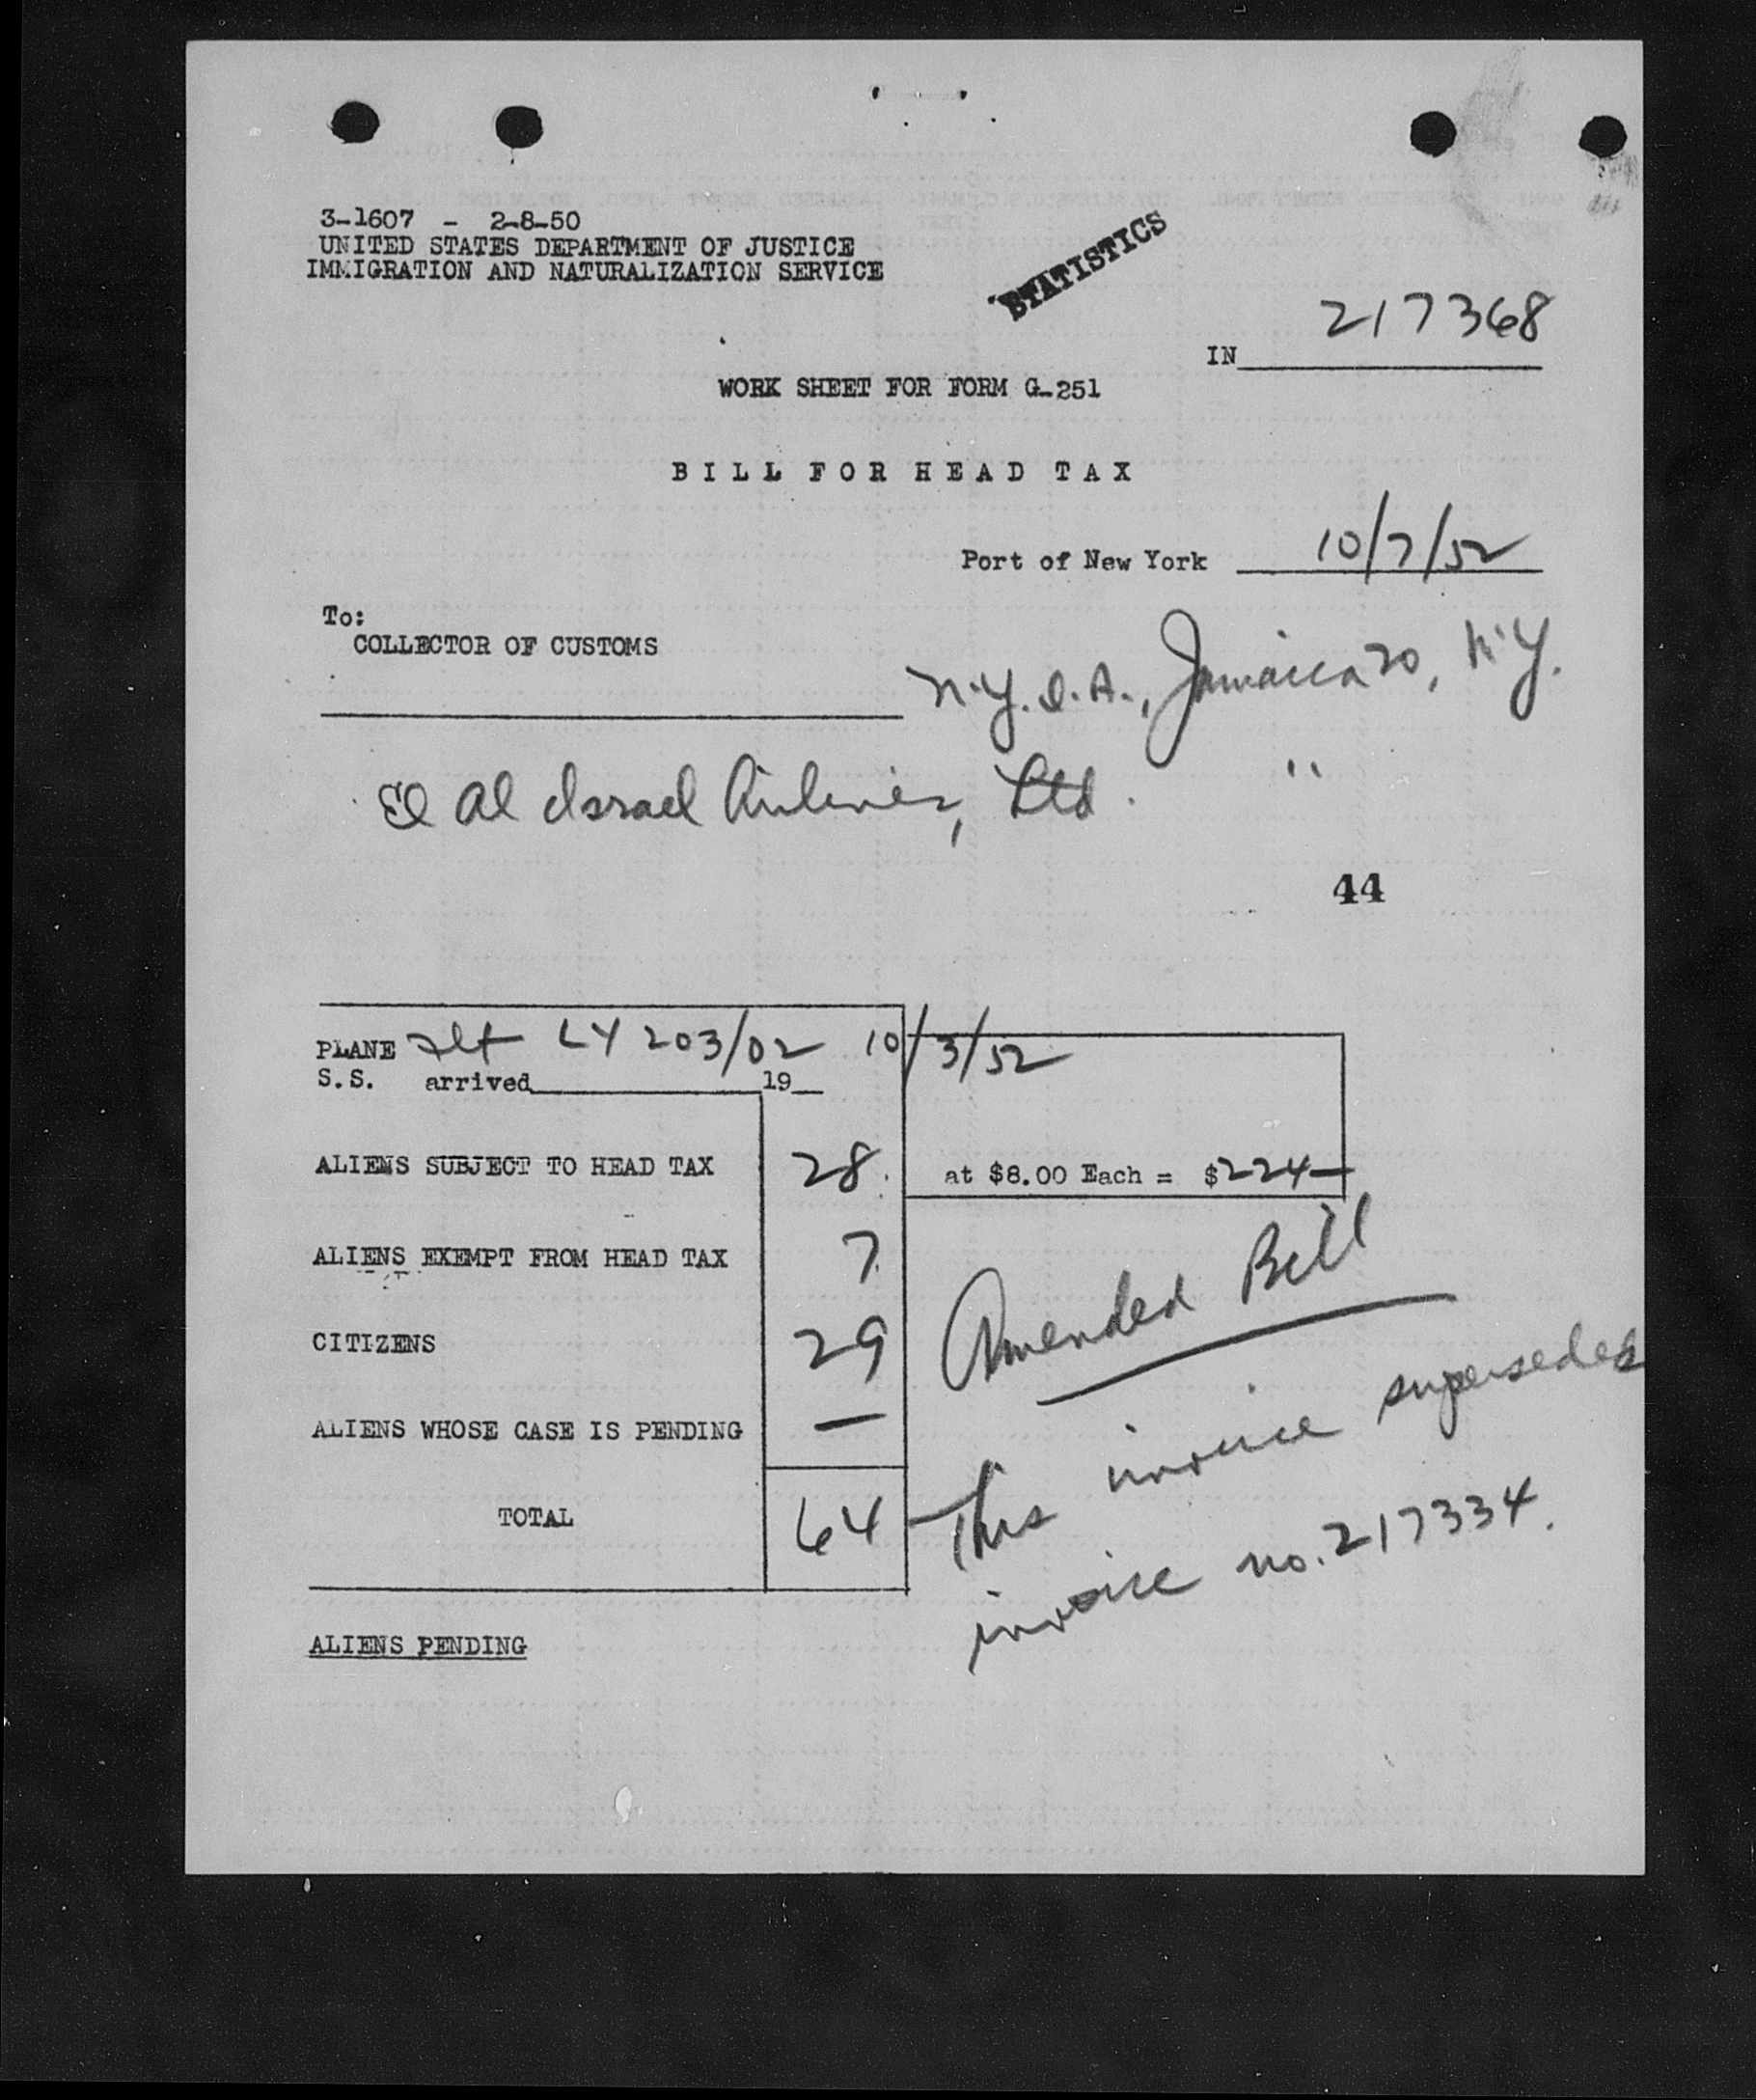 3-1607 - 2-8-50
UNITED STATES DEPARTMENT OF JUSTICE
IMMIGRATION AND NATURALIZATION SERVICE
STATISTICS
IN 217368
WORK SHEET FOR FORM G-251
BILL FOR HEAD TAX
Port of New York 10/7/52
To:
COLLECTOR OF CUSTOMS
N.Y.I.A., Jamaica 30, N.Y.
El Al Israel Airlines, Ltd. "
44
PLANE Flt LY 203/02 10/3/52
S.S. arrived 19
ALIENS SUBJECT TO HEAD TAX 28 at $8.00 Each = $224—
ALIENS EXEMPT FROM HEAD TAX 7
CITIZENS 29
ALIENS WHOSE CASE IS PENDING —
TOTAL 64
Amended Bill
This invoice supersedes
invoice no. 217334.
ALIENS PENDING